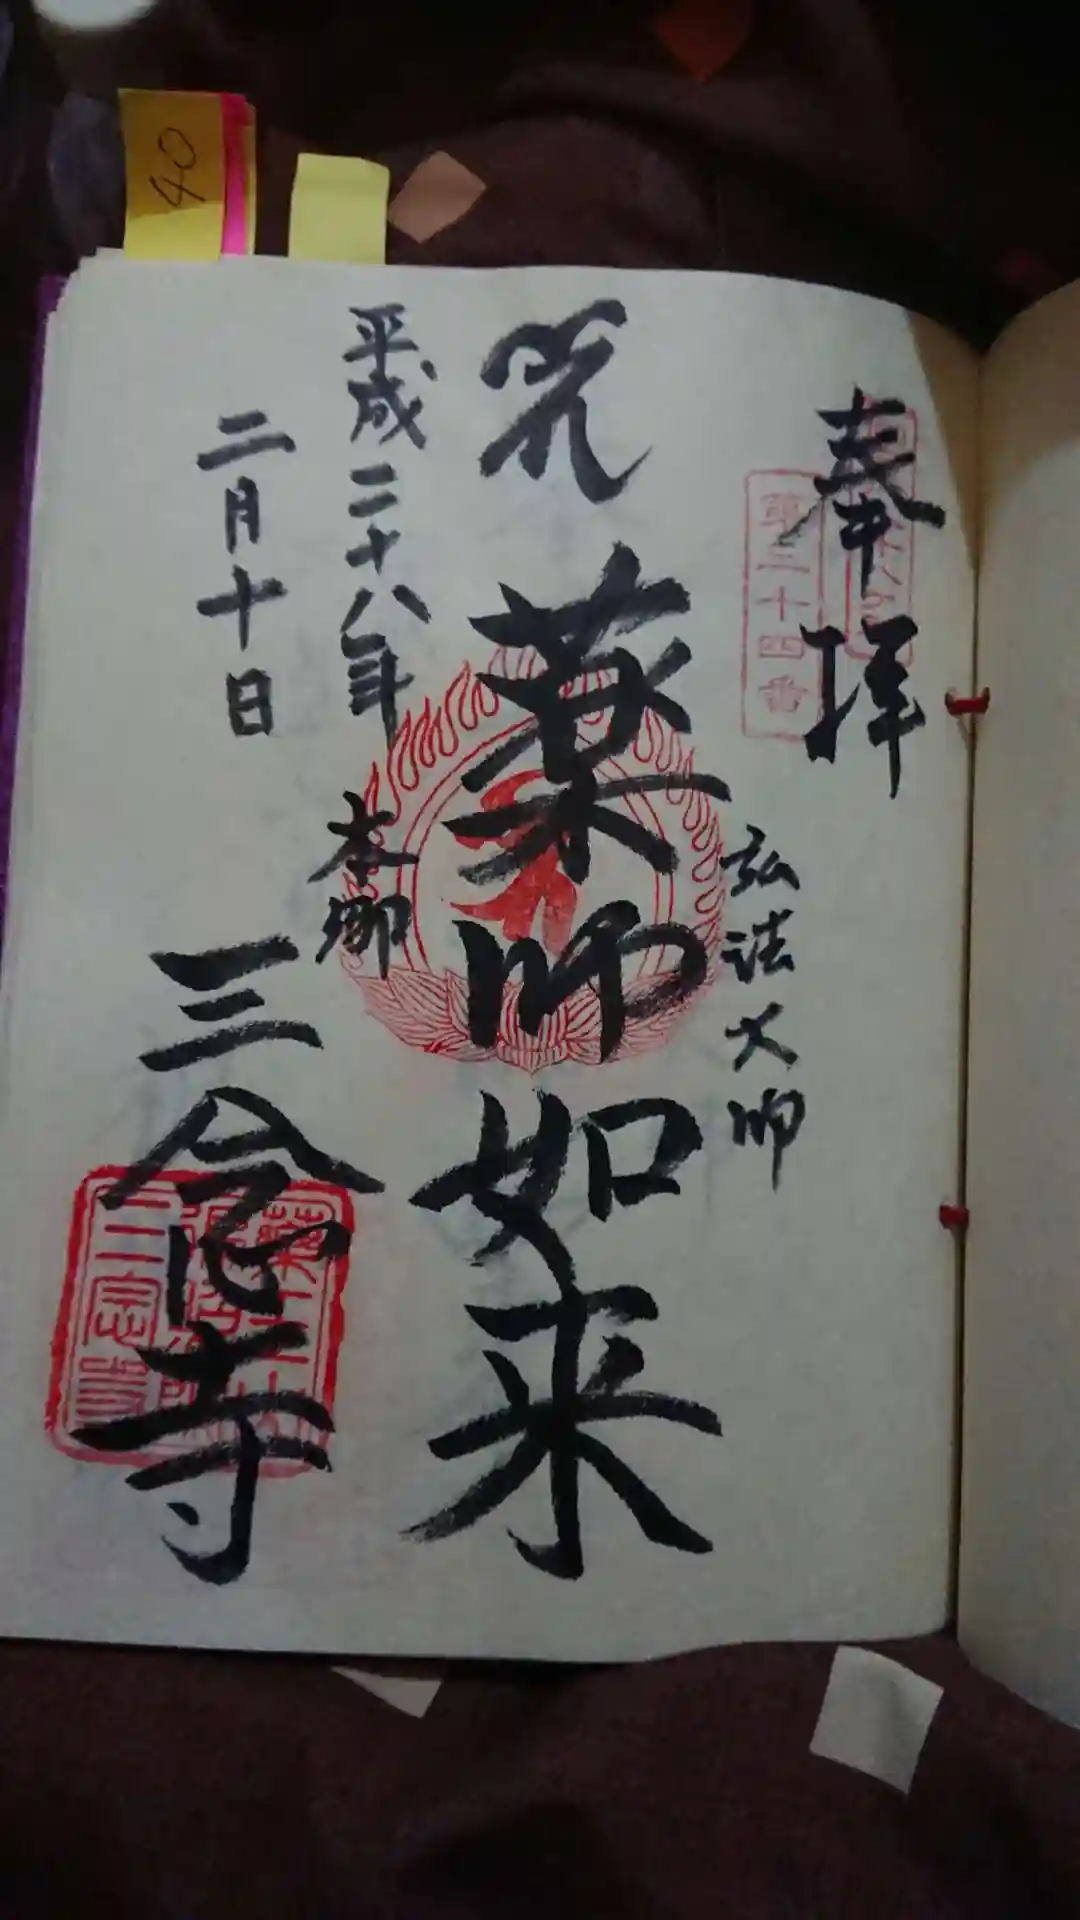 奉拝
第三十四番
弘法大師
薬師如来
平成二十八年
二月十日
本郷
三念寺
40